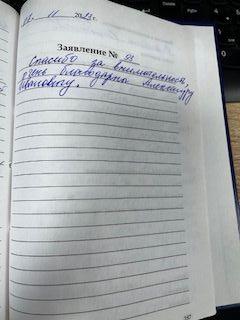 11 2023 г.
Заявление № 93
Спасибо за внимательность,
очень благодарны Александру
Ивановичу.